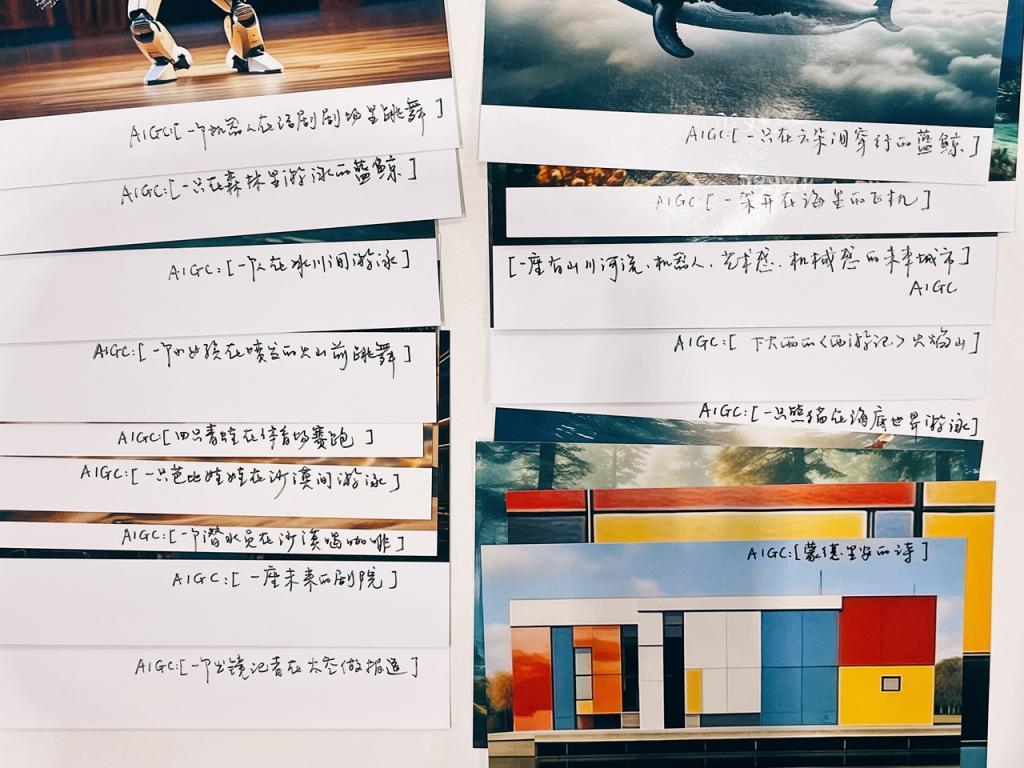 AIGC:[一个机器人在话剧剧场里跳舞]
AIGC:[一只在森林里游泳的蓝鲸]
AIGC:[一个人在冰川间游泳]
AIGC:[一个小女孩在喷发的火山前跳舞]
AIGC:[四只青蛙在体育场赛跑]
AIGC:[一只芭比娃娃在沙漠间游泳]
AIGC:[一个潜水员在沙漠喝咖啡]
AIGC:[一座未来的剧院]
AIGC:[一个出镜记者在太空做报道]
AIGC:[一只在云朵间穿行的蓝鲸]
AIGC:[一架开在海里的飞机]
[一座有山川河流、机器人、艺术感、机械感的未来城市]
AIGC
AIGC:[下大雨的《西游记》火焰山]
AIGC:[一只熊猫在海底世界游泳]
AIGC:[蒙德里安的诗]